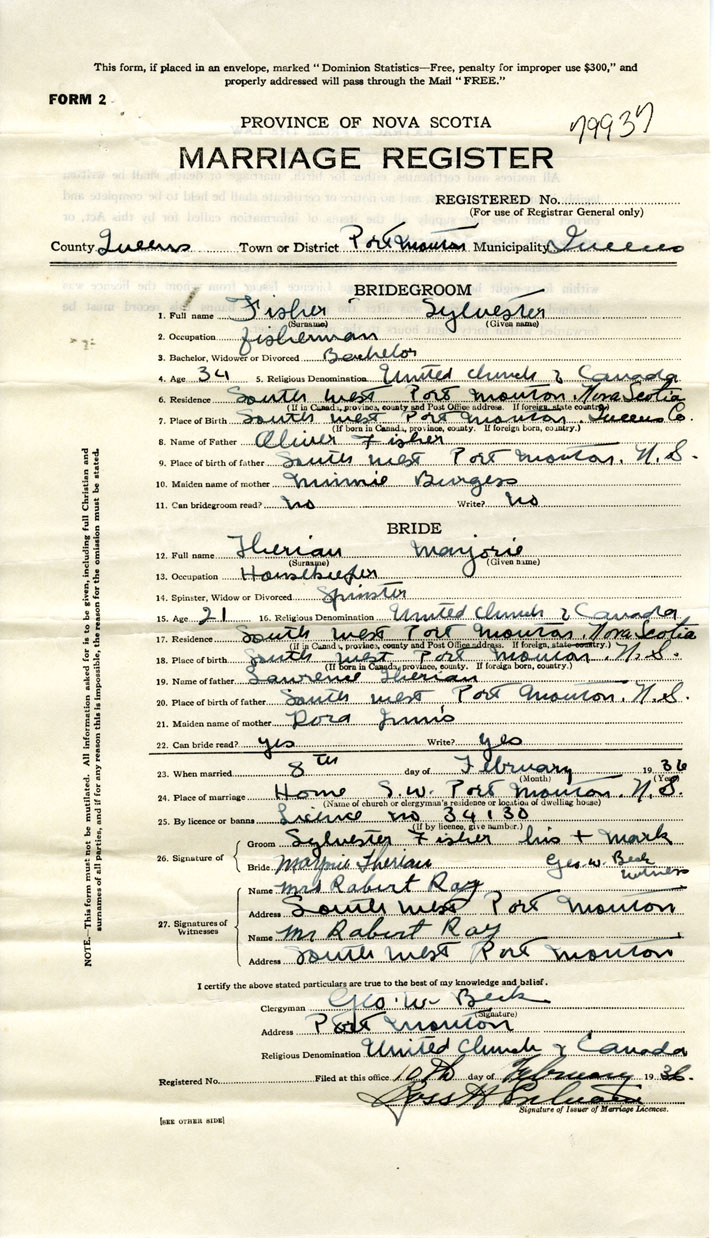 This form, if placed in an envelope, marked “Dominion Statistics—Free, penalty for improper use $300,” and
properly addressed will pass through the Mail “FREE.”
FORM 2
79937
PROVINCE OF NOVA SCOTIA
MARRIAGE REGISTER
REGISTERED No.
(For use of Registrar General only)
County Queens Town or District Port Mouton Municipality Queens
BRIDEGROOM
1. Full name Fisher Sylvester
(Surname) (Given name)
2. Occupation fisherman
3. Bachelor, Widower or Divorced Bachelor
4. Age 34 5. Religious Denomination United Church of Canada
6. Residence South West Port Mouton. Nova Scotia
(If in Canada, province, county and Post Office address. If foreign, state country.)
7. Place of Birth South West Port Mouton. Queens Co.
(If born in Canada, province, county. If foreign born, country.)
8. Name of Father Oliver Fisher
9. Place of birth of father South West Port Mouton. N. S.
10. Maiden name of mother Minnie Burgess
11. Can bridegroom read? no Write? no
BRIDE
12. Full name Therian Marjorie
(Surname) (Given name)
13. Occupation Housekeeper
14. Spinster, Widow or Divorced Spinster
15. Age 21 16. Religious Denomination United Church of Canada
17. Residence South West Port Mouton. Nova Scotia
(If in Canada, province, county and Post Office address. If foreign, state country.)
18. Place of birth South West Port Mouton. N. S.
(If born in Canada, province, county. If foreign born, country.)
19. Name of father Lawrence Therian
20. Place of birth of father South West Port Mouton. N. S.
21. Maiden name of mother Dora Innis
22. Can bride read? yes Write? yes
23. When married 8th day of February 1936
(Month) (Year)
24. Place of marriage Home S. W. Port Mouton. N. S.
(Name of church or clergyman's residence or location of dwelling house)
25. By licence or banns Licence no 34130
(If by licence, give number.)
26. Signature of
Groom Sylvester Fisher his + mark
Bride Marjorie Therian Geo. W. Beck
witness
27. Signatures of Witnesses
Name Mrs Robert Ray
Address South West Port Mouton
Name Mr Robert Ray
Address South West Port Mouton
I certify the above stated particulars are true to the best of my knowledge and belief.
Clergyman Geo. W. Beck
(Signature)
Address Port Mouton
Religious Denomination United Church of Canada
Registered No. Filed at this office 10th day of February 1936.
Ross H
Signature of Issuer of Marriage Licences.
[SEE OTHER SIDE]
NOTE.—This form must not be mutilated. All information asked for is to be given, including full Christian and
surnames of all parties, and if for any reason this is impossible, the reason for the omission must be stated.